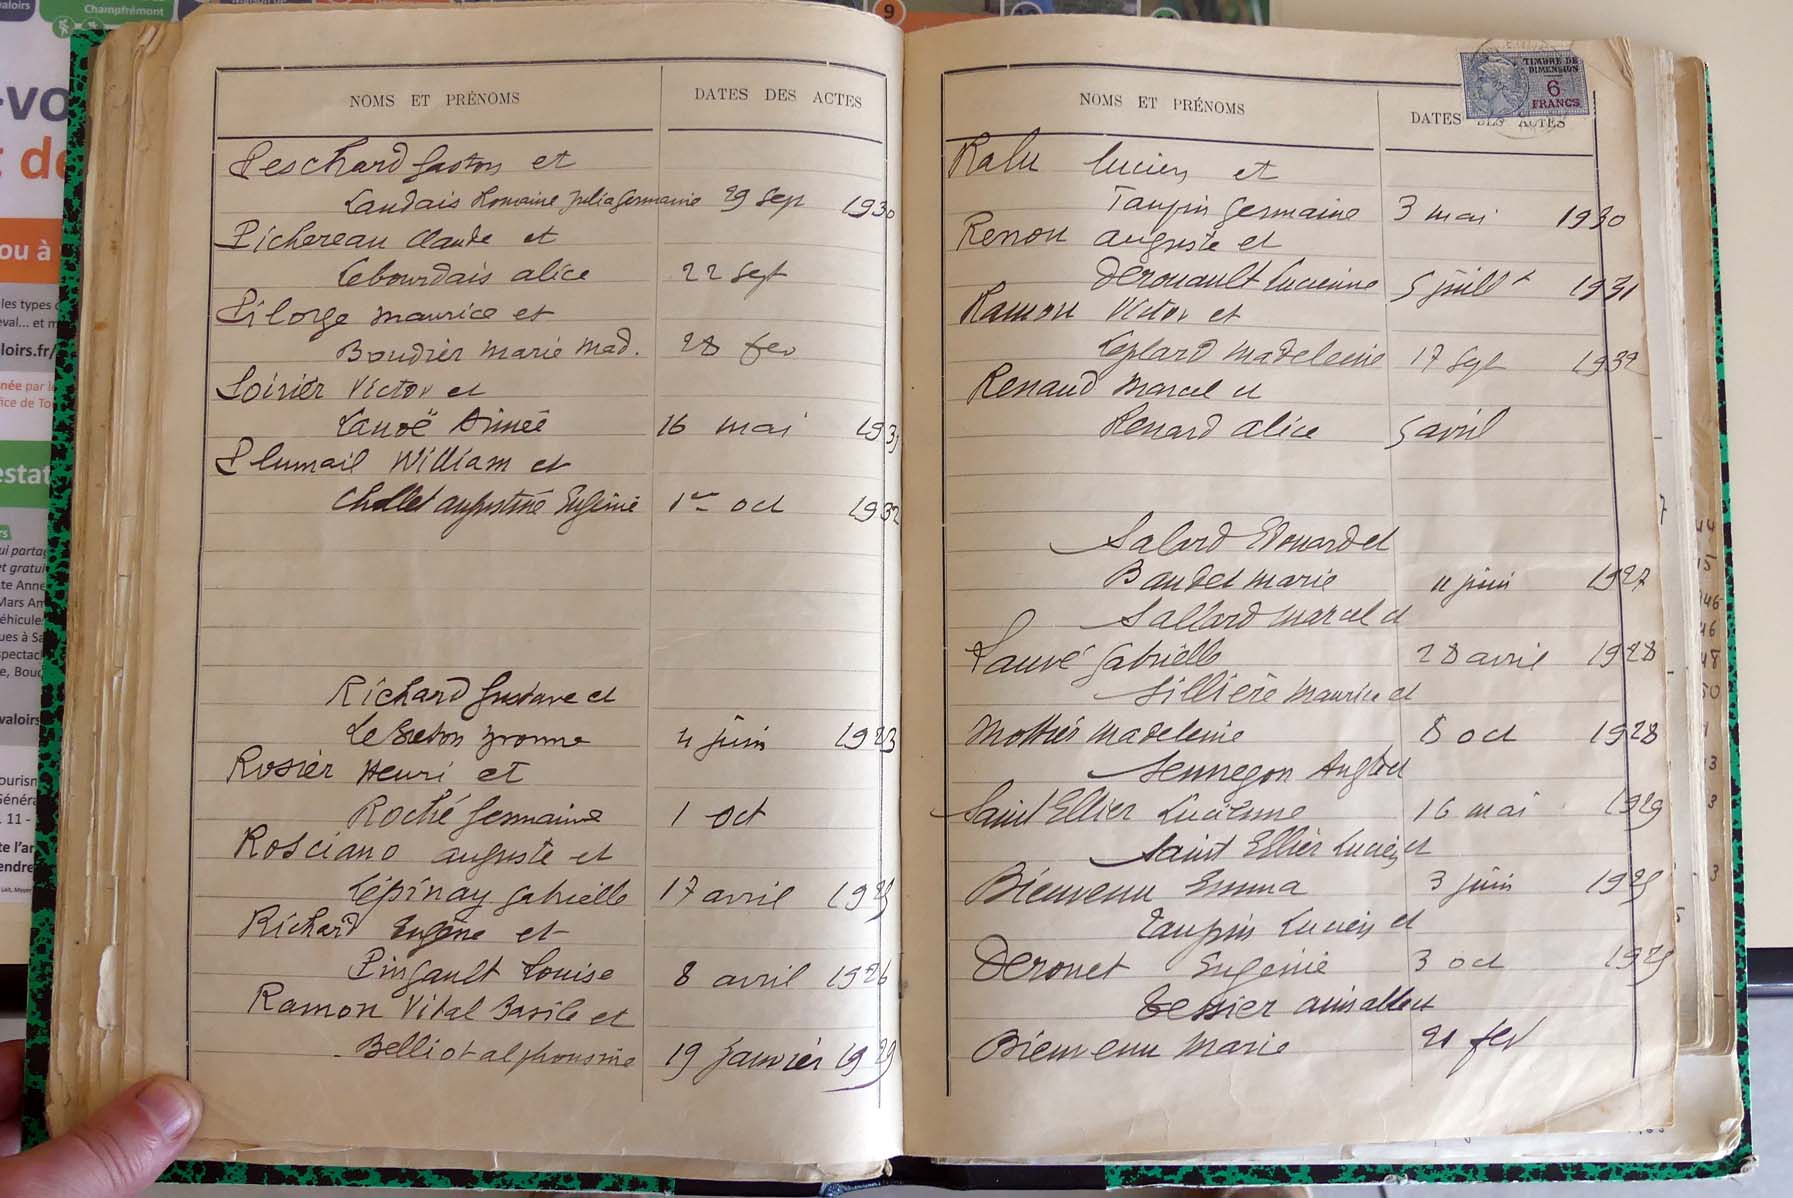 NOMS ET PRÉNOMS DATES DES ACTES
Peschard Gaston et
Landais Romaine Julia Germaine 29 Sep 1930
Pichereau Claude et
Lebourdais alice 22 Sept
Pilorge maurice et
Boudier marie mad. 28 fev
Poirier Victor et
Lanoë Aimée 16 mai 193
Plumail William et
Chollet augustine Eugénie 1er oct 1932
Richard Gustave et
Le Breton Yvonne 4 juin 1923
Rosier Henri et
Roché Germaine 1 oct
Rosciano auguste et
Lépinay Gabrielle 17 avril 1925
Richard Eugène et
Pingault Louise 8 avril 1926
Ramon Vital Basile et
Belliot alphonsine 19 janvier 1929
TIMBRE DE
DIMENSION
6
FRANCS
NOMS ET PRÉNOMS DATES DES ACTES
Ralu Lucien et
Taupin Germaine 3 mai 1930
Renou auguste et
Derouault Lucienne 5 juillt 1931
Ramon Victor et
Leplard madeleine 17 sept 1932
Renaud Marcel et
Renard alice 5 avril
Salard Edouard et
Baudet marie 11 juin 1927
Sallard marcel et
Sauvé Gabrielle 28 avril 1928
Sillière maurice et
Mottier madeleine 8 oct 1928
Sennegon et
Saint Ellier Lucienne 16 mai 1929
Saint Ellier Lucien et
Bienvenu Emma 3 juin 1925
Taupin Lucien et
Derouet Eugénie 3 oct 1925
Tessier et
Bienvenu Marie 21 fev
Champfrémont
9
ou à
les types
loirs.fr/